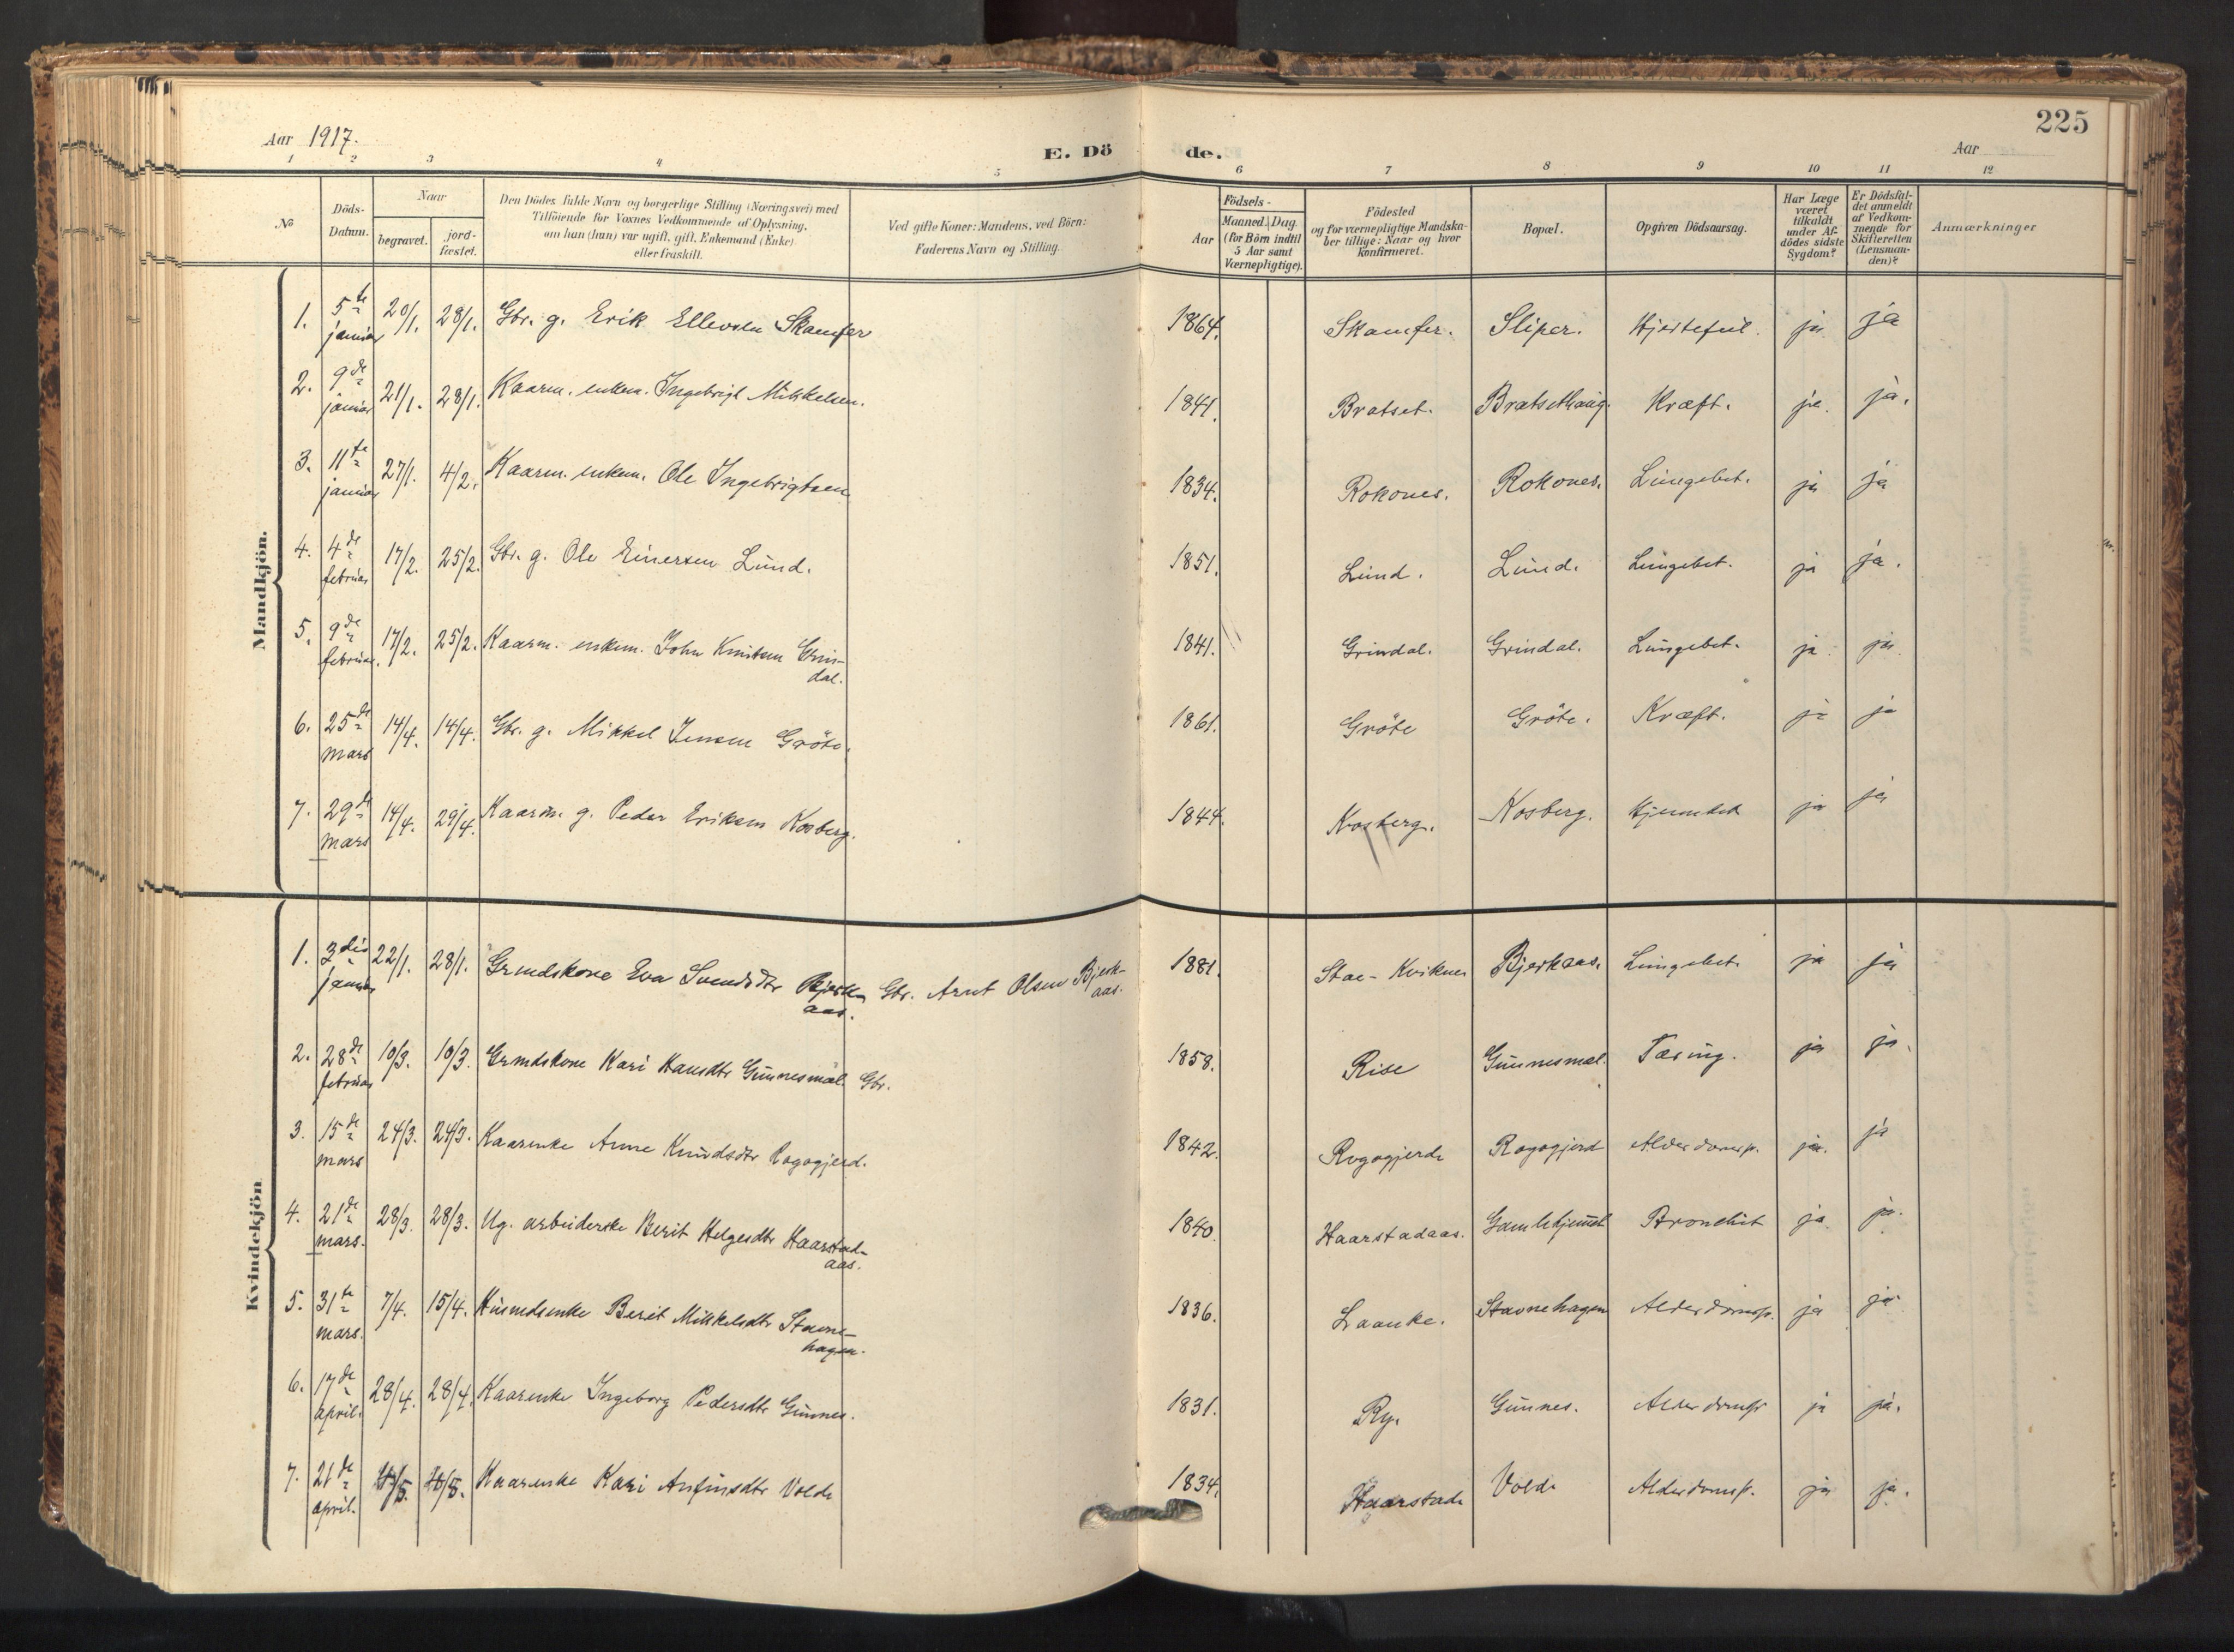 225
Aar 1917. E. Dö de. Aar
1 2 3 4 5 6 7 8 9 10 11 12
No
Döds-
Datum.
Naar
begravet.
jord-
fæstet.
Den Dödes fulde Navn og borgerlige Stilling (Næringsvei) med
Tilföiende for Voxnes Vedkommende af Oplysning,
om han (hun) var ugift, gift, Enkemand (Enke)
eller fraskilt.
Ved gifte Koner: Mandens, ved Börn:
Faderens Navn og Stilling.
Födsels-
Aar
Maaned. Dag.
(for Börn indtil
5 Aar samt
Værnepligtige).
Födested
og for værnepligtige Mandska-
ber tillige: Naar og hvor
konfirmeret.
Bopæl.
Opgiven Dödsaarsag.
Har Læge
været
tilkaldt
under Af-
dödes sidste
Sygdom?
Er Dödsfal-
det anmeldt
af Vedkom-
mende for
Skifteretten
(Lensman-
den)?
Anmærkninger
Mandkjön.
1. 5te januar 20/1. 28/1. Gbr. g. Erik Ellevsen Skamfer 1864. Skamfer. Sliper. Hjertefeil. ja ja
2. 9de januar 21/1. 28/1. Kaarm. enkem. Ingebrigt Mikkelsen. 1841. Bratset. Bratsethaug. Kræft. ja. ja.
3. 11te januar 27/1. 4/2. Kaarm. enkem. Ole Ingebrigtsen 1834. Rokones. Rokones. Lungebet. ja ja
4. 4de februar 17/2. 25/2. Gbr. g. Ole Einersen Lund. 1851. Lund. Lund. Lungebet. ja ja.
5. 9de februar. 17/2. 25/2. Kaarm. enkem. John Knutsen Grin-
dal. 1841. Grindal. Grindal. Lungebet. ja ja
6. 25de mars 14/4. 14/4. Gbr. g. Mikkel Jensen Gröte. 1861. Gröte Gröte. Kræft. ja ja
7. 29de mars 14/4. 29/4. Kaarm. g. Peder Eriksen Kosberg. 1844. Kosberg. Kosberg. ja ja
Kvindekjön
1. 3die januar 22/1. 28/1. Grmdskone Eva Svendsdtr Bjerk-
aas. Gbr. Arnt Olsen Bjerk-
aas. 1881. Stae - Kvikne Bjerkaas. Lungebet. ja ja
2. 28de februar 10/3. 10/3. Grmdskone Kari Hansdtr Gunnesmæl. Gbr. 1858. Rise Gunnesmæl. Tæring. ja ja.
3. 15de mars 24/3. 24/3. Kaarenke Anne Knudsdtr Rogogjerd. 1842. Rogogjerde Rogogjerd Alderdomsp. ja. ja
4. 21de mars. 28/3. 28/3. Ug. arbeiderske Berit Helgesdtr Haarstad-
aas. 1840. Haarstadaas. Gamlehjemmet Bronchit ja. ja.
5. 31te mars. 7/4. 15/4. Husmdsenke Berit Mikkelsdtr Stavne-
hagen. 1836. Laanke. Stavnehagen Alderdomsp. ja ja
6. 17de april. 28/4. 28/4. Kaarenke Ingeborg Pedersdtr Gunnes. 1831. Ry. Gunnes. Alderdomsp ja ja.
7. 21de april. Kaarenke Kari Anfinsdtr Volde 1834. Haarstade Volde Alderdomsp. ja ja.